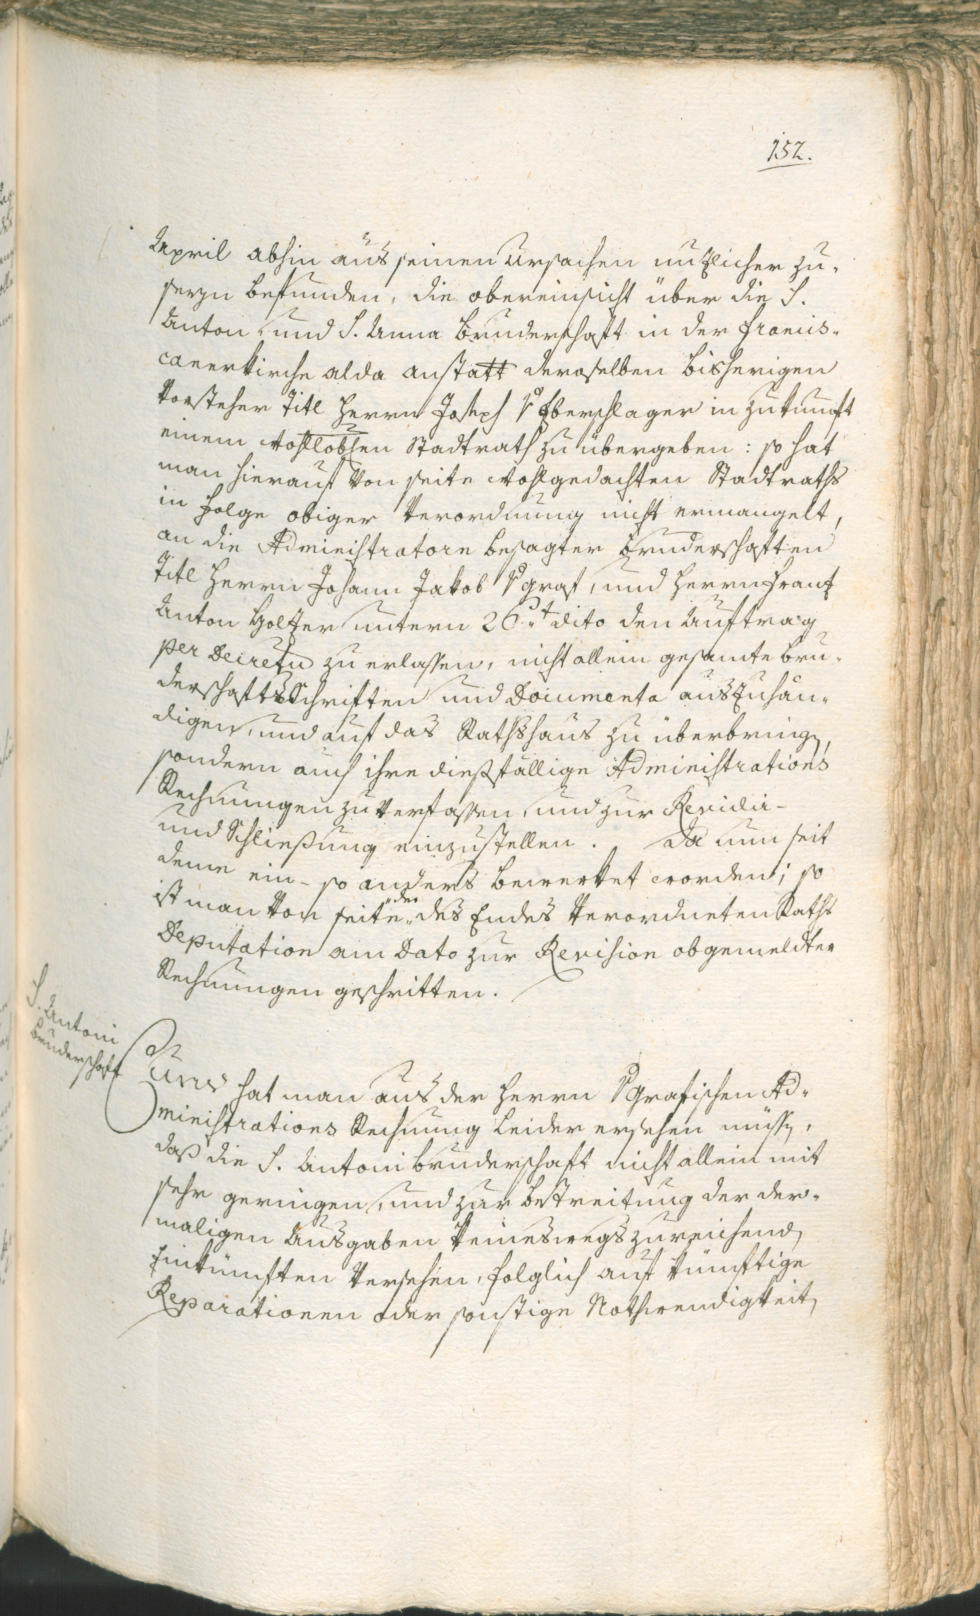 152.
April abhin aus seinen Ursachen nutzlicher zu-
seyn befunden, die obereinsicht über die S.
Anton und S. Anna Bruderschaft in der Francis-
canerkirche alda anstatt deroselben bisherigen
Vorsteher Titl Herrn Joseph v Eberschlager in zukunft
einem wohllobhen Stadtrath zu übergeben: so hat
man hierauf von seite wohlgedachten Stadtraths
in folge obiger Verordnung nicht ermangelt,
an die Administratorn besagter Bruderschaften
Titl Herrn Johann Jakob v graf, und Herrn Frantz
Anton Holtzer untern 26t dito den Auftrag
per Decretu zu erlassen, nicht allein gesamte bru-
derschafts Schriften und Documenta auszuhän-
digen, und auf das Rathshaus zu überbringen,
sondern auch ihre dießfällige Administrations
Rechnungen zu verfassen, und zur Revidir-
und Schließung einzustellen. Da nun seit
deme ein- so anders bewerket worden; so
ist man von seite der des Endes Verordneten Raths
Deputation am Dato zur Revision obgemeldter
Rechnungen geschritten.
S. Antoni
bruderschaft
hat man aus der Herrn v Grafischen Ad-
ministrations Rechnung leider ersehen müssen,
daß die S. Antoni bruderschaft nicht allein mit
sehr geringen, und zur bestreitung der der-
maligen Ausgaben keineswegs zureichenden
Einkünften versehen, folglich auf künftige
Reparationen oder sonstige Nothwendigkeiten